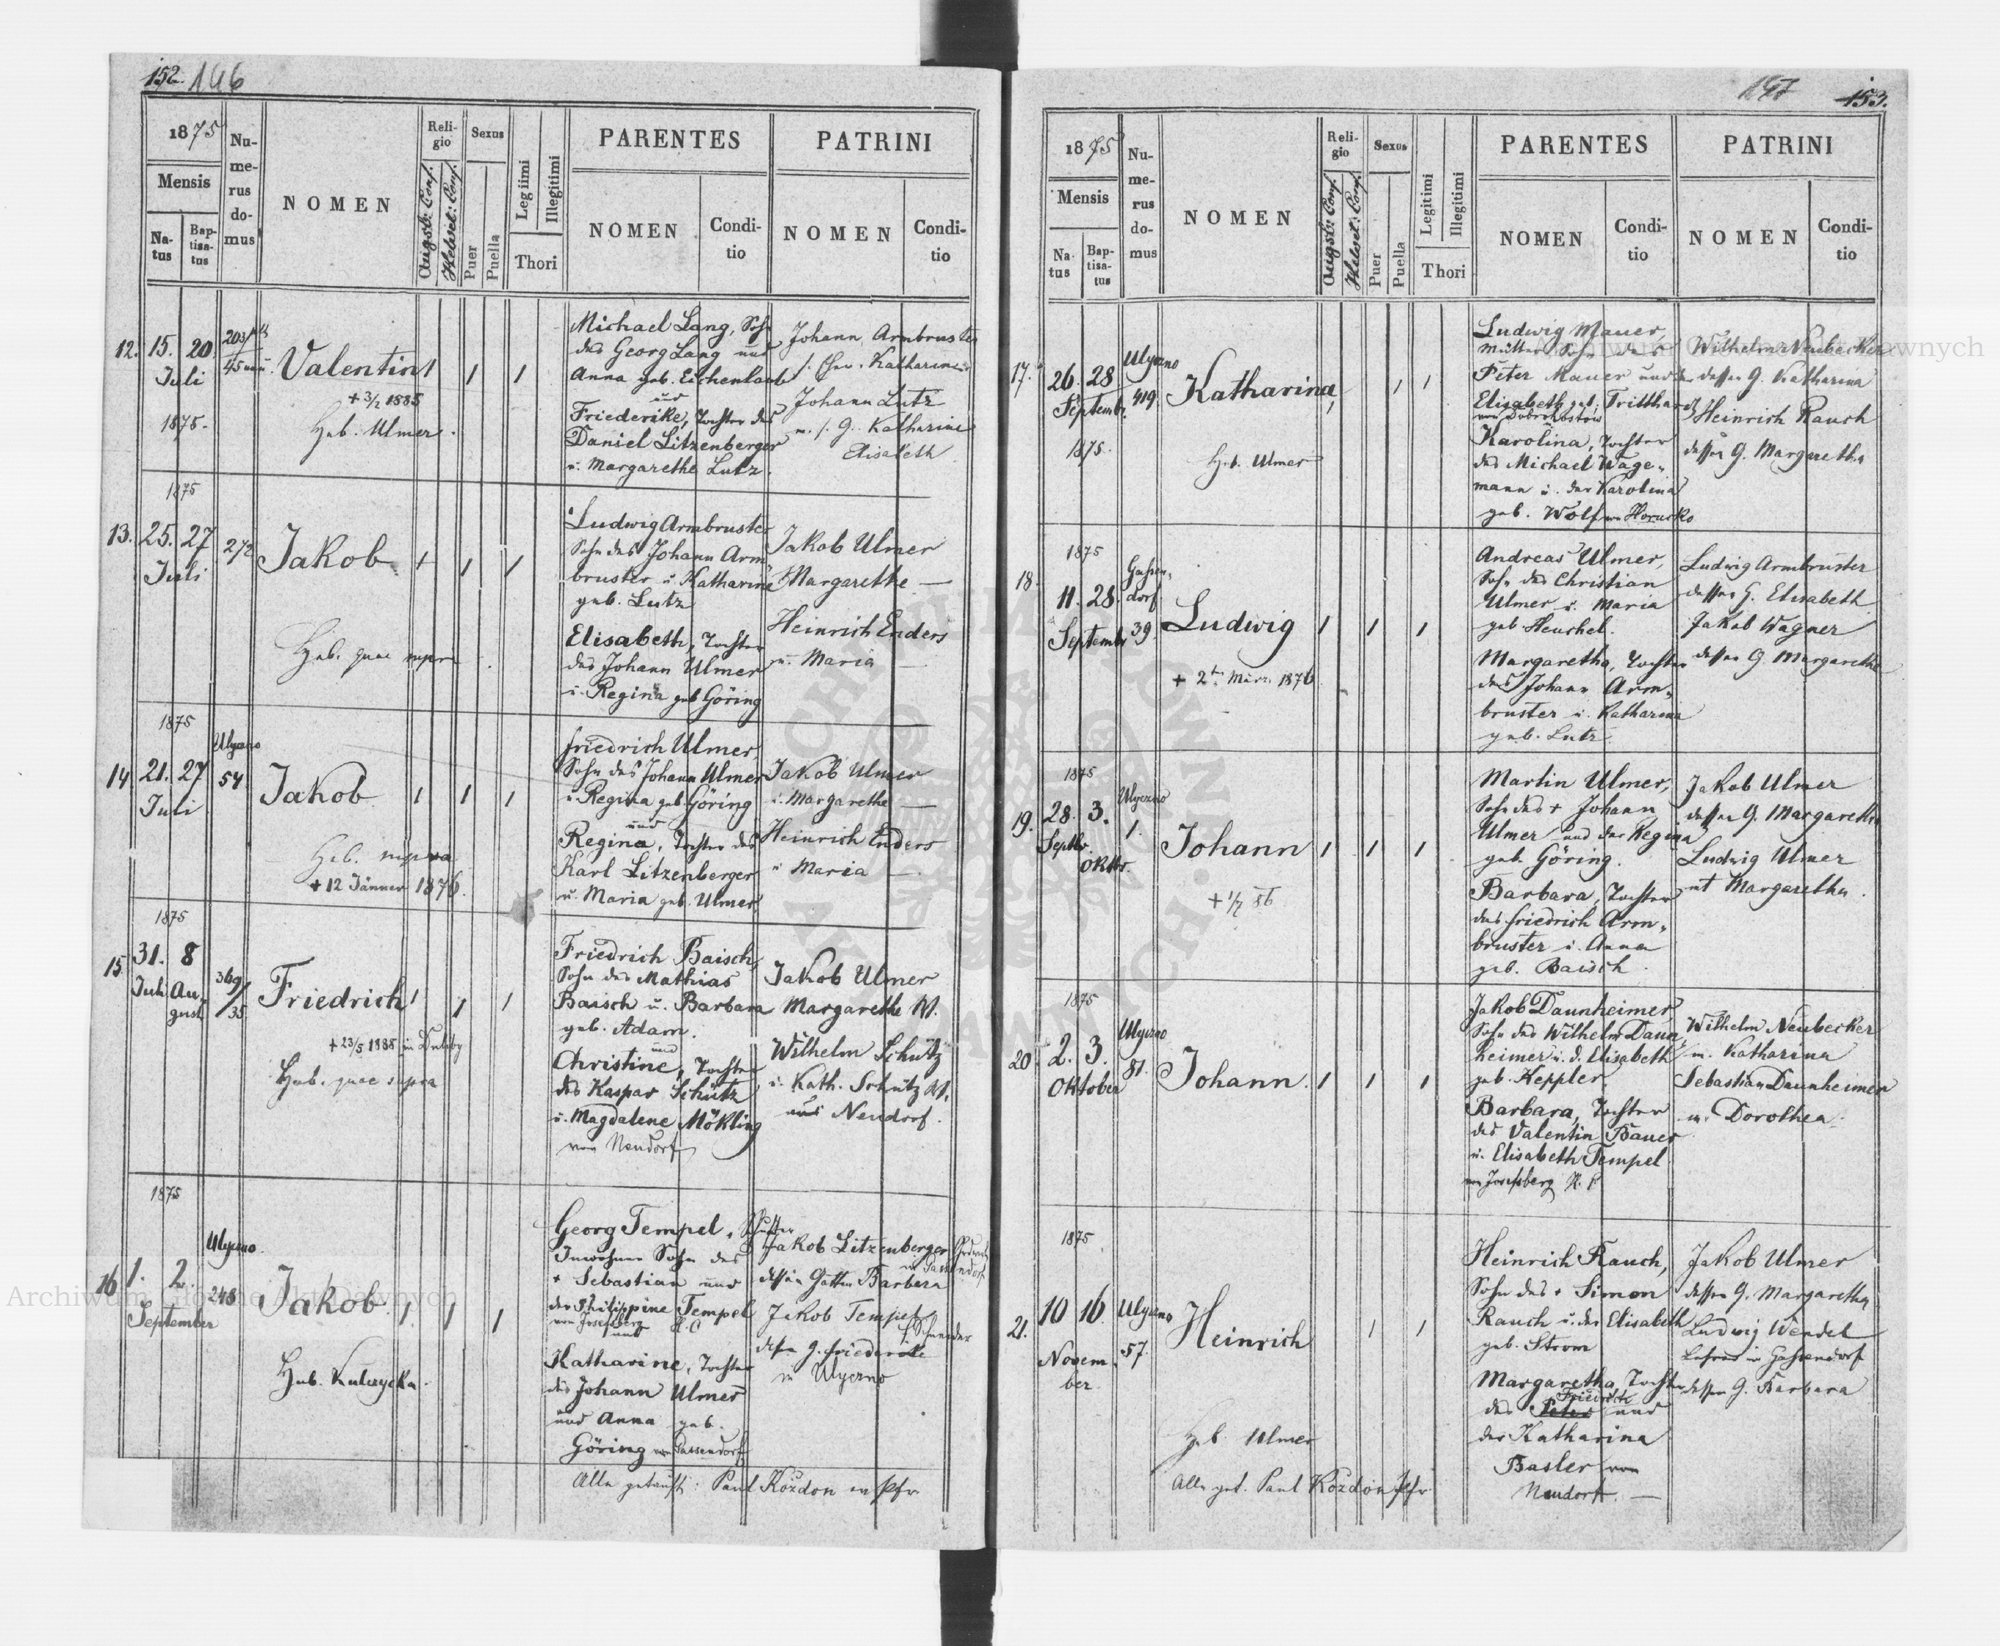 152. 146
1875
Mensis
Natus
Baptisatus
Numerus domus
NOMEN
Religio
Augsb: Conf.
Helvet: Conf.
Sexus
Puer
Puella
Legiimi
Illegitimi
Thori
PARENTES
NOMEN
Conditio
PATRINI
NOMEN
Conditio
12. 15. 20.
Juli
1875.
Valentin
+ 3/2 1885
Heb. Ulmer.
Michael Lang, Sohn
des Georg Lang und
Anna geb. Eichenlaub
und
Friederike, Tochter des
Daniel Litzenberger
u. Margarethe Lutz.
Johann Armbruster
Katharina
Johann Lutz
Katharine
Elisabeth
1875
13. 25. 27
Juli
272
Jakob
Heb. quae supra
Ludwig Armbruster
Sohn des Johann Arm
bruster u. Katharine
geb. Lutz
Elisabeth, Tochter
des Johann Ulmer
u. Regina geb Göring
Jakob Ulmer
Margarethe —
Heinrich Enders
u. Maria —
1875
14. 21. 27
Juli
Ulyczno
54
Jakob
Heb. supra
+ 12 Jänner 1876.
Friedrich Ulmer
Sohn des Johann Ulmer
u. Regina geb. Göring
und
Regina, Tochter des
Karl Litzenberger
u. Maria geb. Ulmer
Jakob Ulmer
u. Margarethe —
Heinrich Enders
u. Maria —
1875
15. 31. 8
Juli August
369/35
Friedrich
+ 23/5 1885 in Dulęby
Heb. quae supra
Friedrich Baisch
Sohn des Mathias
Baisch u. Barbara
geb. Adam.
und
Christine, Tochter
des Kaspar Schütz
u. Magdalene Mökling
von Neudorf
Jakob Ulmer
Margarethe U.
Wilhelm Schütz
u. Kath. Schütz
aus Neudorf.
1875
16. 1. 2.
September
Ulyczno.
248
Jakob.
Heb. Kulczycka.
Georg Tempel,
Inwohner Sohn des
+ Sebastian und
der Philippine Tempel
von Josefsberg
und
Katharine, Tochter
des Johann Ulmer
und Anna geb.
Göring von Gassendorf
Jakob Litzenberger
in Gassendorf
dessen Gattin Barbera
Jakob Tempel
Schneider
dessen G. Friederike
in Ulyczno
Alle getauft: Paul Kozdon ev Pfr
147 153.
1875
Mensis
Natus
Baptisatus
Numerus domus
NOMEN
Religio
Augsb: Conf.
Helvet: Conf.
Sexus
Puer
Puella
Legitimi
Illegitimi
Thori
PARENTES
NOMEN
Conditio
PATRINI
NOMEN
Conditio
17. 26. 28
Septemb.
1875.
Ulyczno
419.
Katharina,
Heb. Ulmer
Ludwig Mauer,
Sohn des
Peter Mauer und der
Elisabeth geb. Tritthardt
Karolina, Tochter
des Michael Wage-
mann u. der Karolina
geb. Wolf
Wilhelm Neubecker
dessen G. Katharina
Heinrich Rauch
dessen G. Margaretha
1875
18. 11. 28.
September
Gassen-
dorf
39.
Ludwig
+ 2ten März 1876.
Andreas Ulmer,
Sohn des Christian
Ulmer u. Maria
geb Heuchel.
Margaretha, Tochter
des Johann Arm-
bruster u. Katharina
geb. Lutz.
Ludwig Armbruster
dessen G. Elisabeth
Jakob Wagner
dessen G. Margarethe
1875
19. 28. 3.
Septbr. Oktbr.
Ulyczno
1.
Johann
Martin Ulmer,
Sohn des + Johann
Ulmer und der Regina
geb. Göring.
Barbara, Tochter
des Friedrich Arm-
bruster u. Anna
geb. Baisch.
Jakob Ulmer
dessen G. Margaretha
Ludwig Ulmer
et Margaretha.
1875
20. 2. 3.
Oktober
Ulyczno
81.
Johann.
Jakob Daunheimer
Sohn des Wilhelm Daun
heimer u. d. Elisabeth
geb. Keppler.
Barbara, Tochter
des Valentin Bauer
u. Elisabeth Tempel
von Josefsberg
Wilhelm Neubecker
u. Katharina
Sebastian Daunheimer
u. Dorothea.
1875
21. 10 16.
November
Ulyczno
57.
Heinrich
Heb. Ulmer
Heinrich Rauch,
Sohn des + Simon
Rauch u. der Elisabeth
geb. Strom
Margaretha Tochter
Friedrich
des Peter und
der Katharina
Basler von
Neudorf. —
Jakob Ulmer
dessen G. Margaretha
Ludwig Wendel
Lehrer in Gassendorf
dessen G. Barbara
Alle get. Paul Kozdon Pfr
Archiwum Główne Akt Dawnych
Archiwum Główne Akt Dawnych